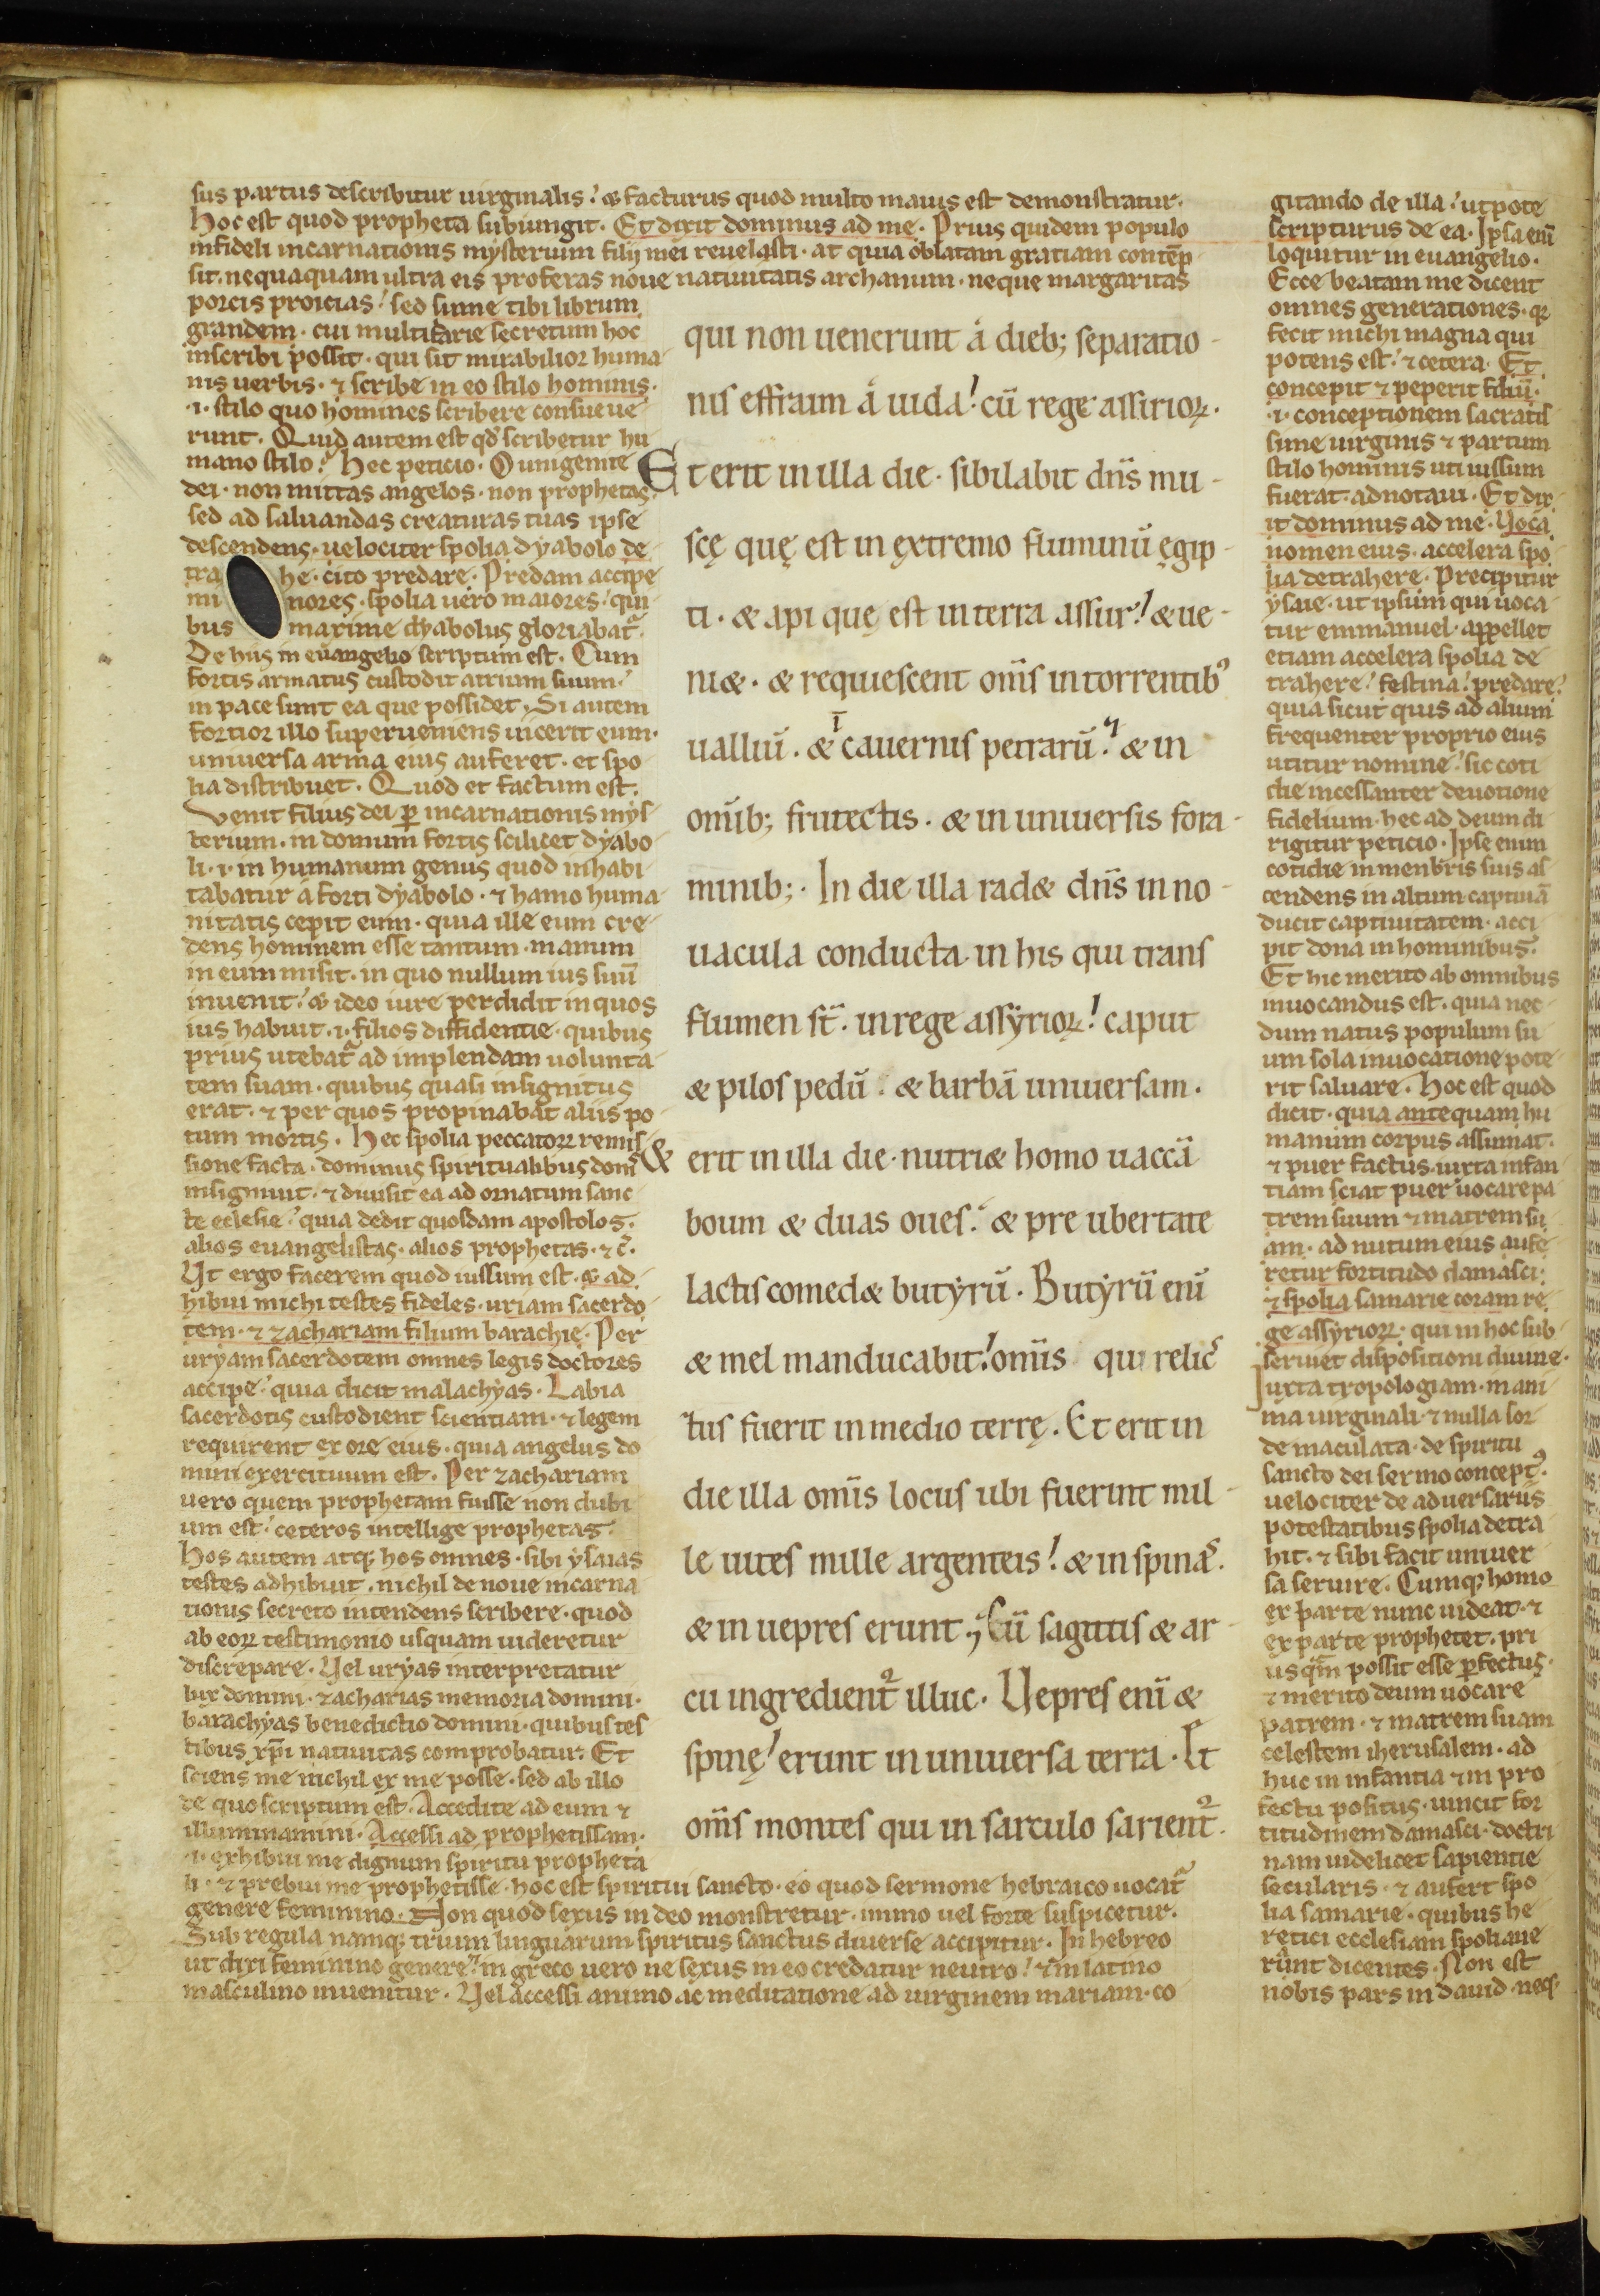 sus partus describitur uirginalis? & facturus quod multo maius est demonstratur.
hoc est quod propheta subiungit. Et dixit dominus ad me. Prius quidem populo
infideli incarnationis mysterium filij mei reuelasti. at quia oblatam gratiam contēp
sit. nequaquam ultra eis proferas noue natiuitatis archanum. neque margaritas
porcis proicias? sed sume tibi librum
grandem. cui multifarie secretum hoc
inscribi possit. qui sit mirabilior huma-
nis uerbis. ⁊ scribe in eo stilo hominis.
.i. stilo quo homines scribere consueue-
runt. Quid autem est qd̕ scribetur hu
mano stilo? Hec peticio. O unigenite
dei. non mittas angelos. non prophetas.
sed ad saluandas creaturas tuas ipse
descendens. uelociter spolia dyabolo de
tra he. cito predare. Predam accipe
mi nores. spolia uero maiores? qui
bus maxime dyabolus gloriabat̃.
De hiis in euangelio scriptum est. Cum
fortis armatus custodit atrium suum?
in pace sunt ea que possidet. Si autem
fortior illo superueniens uicerit eum.
uniuersa arma eius auferet. et spo
lia distribuet. Quod et factum est.
Venit filius dei ꝑ incarnationis mys
terium. in domum fortis scilicet dyabo
li. i. in humanum genus quod inhabi
tabatur a forti dyabolo. ⁊ hamo huma-
nitatis cepit eum. quia ille eum cre-
dens hominem esse tantum. manum
in eum misit. in quo nullum ius suū
inuenit? & ideo iure perdidit in quos
ius habuit. i. filios diffidentie. quibus
prius utebat̃ ad implendam uolunta-
tem suam. quibus quasi insignitus
erat. ⁊ per quos propinabat aliis po-
tum mortis. Hec spolia peccatoꝝ remis
sione facta. dominus spiritualibus donis
insigniuit. ⁊ diuisit ea ad ornatum sanc
te ecclesie? quia dedit quosdam apostolos.
alios euangelistas. alios prophetas. ⁊ c̃.
Ut ergo facerem quod iussum est. & ad
hibui michi testes fideles. uriam sacerdo
tem. ⁊ zachariam filium barachię. Per
uryam sacerdotem omnes legis doctores
accipe? quia dicit malachyas. Labia
sacerdotis custodient scientiam. ⁊ legem
requirent ex ore eius. quia angelus do
mini exercituum est. Per zachariam
uero quem prophetam fuisse non dubi
um est? ceteros intellige prophetas.
Hos autem atqꝫ hos omnes. sibi ysaias
testes adhibuit. nichil de noue incarna
tionis secreto intendens scribere. quod
ab eoꝝ testimonio usquam uideretur
discrepare. Uel uryas interpretatur
lux domini. zacharias memoria domini.
barachyas benedictio domini. quibus tes
tibus xp̄i natiuitas comprobatur. Et
sciens me nichil ex me posse. sed ab illo
de quo scriptum est. Accedite ad eum ⁊
illuminamini. Accessi ad prophetissam.
.i. exhibui me dignum spiritu propheta
li. ⁊ prebui me prophetisse. hoc est spiritui sancto. eo quod sermone hebraico uocat̃
genere feminino. Non quod sexus in deo monstretur. immo uel forte suspicetur.
Sub regula namqꝫ trium linguarum spiritus sanctus diuerse accipitur. In hebreo
ut dixi feminino genere? in greco uero ne sexus in eo credatur neutro? ⁊ in latino
masculino inuenitur. Uel accessi animo ac meditatione ad uirginem mariam. co
qui non uenerunt á dieb; separatio-
nis effraim á iuda! cū rege assirioꝝ.
Et erit in illa die. sibilabit dn̄s mu-
scę quę est in ęxtremo fluminū ęgip-
ti. & api que est in terra assur! & ue-
ni&. & requiescent om̄s in torrentibꝰ
ualliū. & ī cauernis petrarū. & in
omīb; frutectis. & in uniuersis fora-
minib;. In die illa rad& dn̄s in no-
uacula conducta. in his qui trans
flumen st̄. in rege assyrioꝝ! caput
& pilos pedū. & barbā uniuersam.
& erit in illa die. nutri& homo uaccā
boum & duas oues. & pre ubertate
lactis comed& butyrū. Butyrū enī
& mel manducabit! omīs qui relic
tus fuerit in medio terrę. Et erit in
die illa omīs locus ubi fuerint mil-
le uites mille argenteis! & in spinas.
& in uepres erunt. Cū sagittis & ar-
cu ingredient̃ illuc. Uepres enī &
spinę! erunt in uniuersa terra. Et
om̄s montes qui in sarculo sarient̃.
gitando de illa? utpote
scripturus de ea. Ipsa enī
loquitur in euangelio.
Ecce beatam me dicent
omnes generationes. qꝛ
fecit michi magna qui
potens est? ⁊ cetera. Et
concepit ⁊ peperit filiū.
.i. conceptionem sacratis
sime uirginis ⁊ partum
stilo hominis uti iussum
fuerat. adnotaui. Et dix
it dominus ad me. Uoca
nomen eius. accelera spo
lia detrahere. Precipitur
ysaie. ut ipsum qui uoca
tur emmanuel. appellet
etiam accelera spolia de
trahere? festina! predare?
quia sicut quis ad alium
frequenter proprio eius
utitur nomine? sic coti
die incessanter deuotione
fidelium. hec ad deum di
rigitur peticio. Ipse enim
cotidie in menbris suis as
cendens in altum captiuā
ducit captiuitatem. acci
pit dona in hominibus.
Et hic merito ab omnibus
inuocandus est. quia nec
dum natus populum su
um sola inuocatione pote
rit saluare. Hoc est quod
dicit. quia antequam hu
manum corpus assumat.
⁊ puer factus. iuxta infan
tiam sciat puer uocare pa
trem suum ⁊ matrem su
am. ad nutum eius aufe
retur fortitudo damasci.
⁊ spolia samarie coram re
ge assyrioꝝ. qui in hoc sub
seruiet dispositioni diuine.
Iuxta tropologiam. in ani
ma uirginali ⁊ nulla sor
de maculata. de spiritu
sancto dei sermo conceptꝰ.
uelociter de aduersariis
potestatibus spolia detra
hit. ⁊ sibi facit uniuer
sa seruire. Cumqꝫ homo
ex parte nunc uideat. ⁊
ex parte prophetet. pri
us qm̄ possit esse ꝑfectus.
⁊ merito deum uocare
patrem. ⁊ matrem suam
celestem iherusalem. ad
huc in infantia ⁊ in pro
fectu positus. uincit for
titudinem damasci. doctri
nam uidelicet sapientie
secularis. ⁊ aufert spo
lia samarie. quibus he
retici ecclesiam spoliaue
runt dicentes. Non est
nobis pars in dauid. neqꝫ